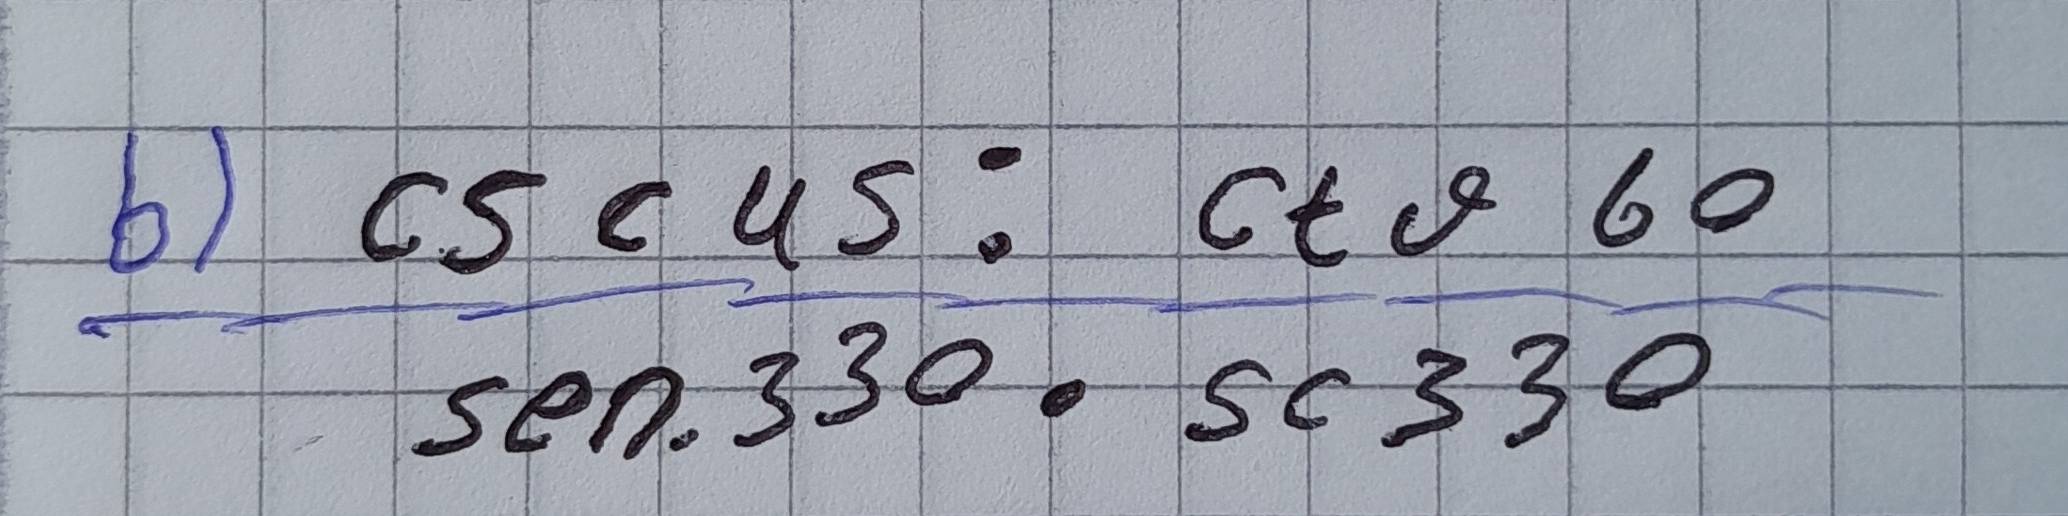 b) csc 45 : ctg 60
sen. 330 . sc 330